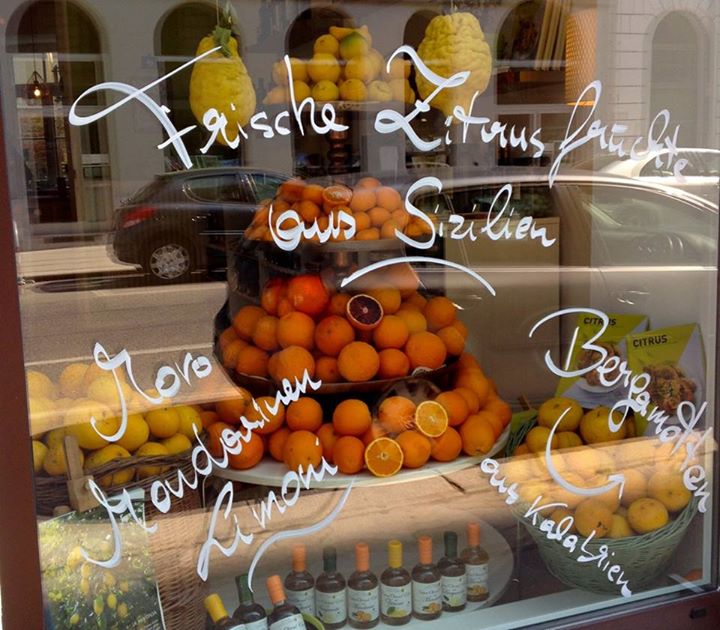 Frische Zitrusfrüchte
aus Sizilien
Moro
Mandarinen
Limoni
Bergamotten
aus Kalabrien
CITRUS
CITRUS